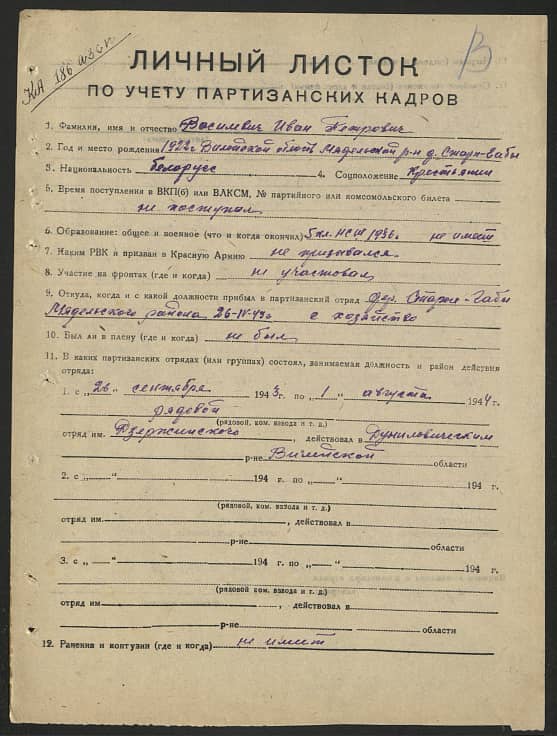 КА 186
В
ЛИЧНЫЙ ЛИСТОК
ПО УЧЕТУ ПАРТИЗАНСКИХ КАДРОВ
1. Фамилия, имя и отчество Василевич Иван Петрович
2. Год и место рождения 1922г Вилейской область Мядельский р-н д. Старо-Габы
3. Национальность белорусс 4. Соцположение Крестьянин
5. Время поступления в ВКП(б) или ВЛКСМ, № партийного или комсомольского билета
не поступал
6. Образование: общее и военное (что и когда окончил) 5 кл. НСШ 1936. не имеет
7. Каким РВК и призван в Красную Армию не призывался.
8. Участие на фронтах (где и когда) не участвовал
9. Откуда, когда и с какой должности прибыл в партизанский отряд дер. Старые-Габы
Мядельского района 26-IV-43г с хозяйство
10. Был ли в плену (где и когда) не был
11. В каких партизанских отрядах (или группах) состоял, занимаемая должность и район действия
отряда:
1. с „26 сентября 1943 г. по „1 августа 1944 г.
рядовой
(рядовой, ком. взвода и т. д.)
отряд им. Дзержинского, действовал в Дуниловическим
р-не Вилейской области
2. с „ “ 194 г. по „ “ 194 г.
(рядовой, ком. взвода и т. д.)
отряд им , действовал в
р-не области
3. с „ “ 194 г. по „ “ 194 г.
(рядовой, ком. взвода и т. д.)
отряд им , действовал в
р-не области
12. Ранения и контузии (где и когда) не имеет